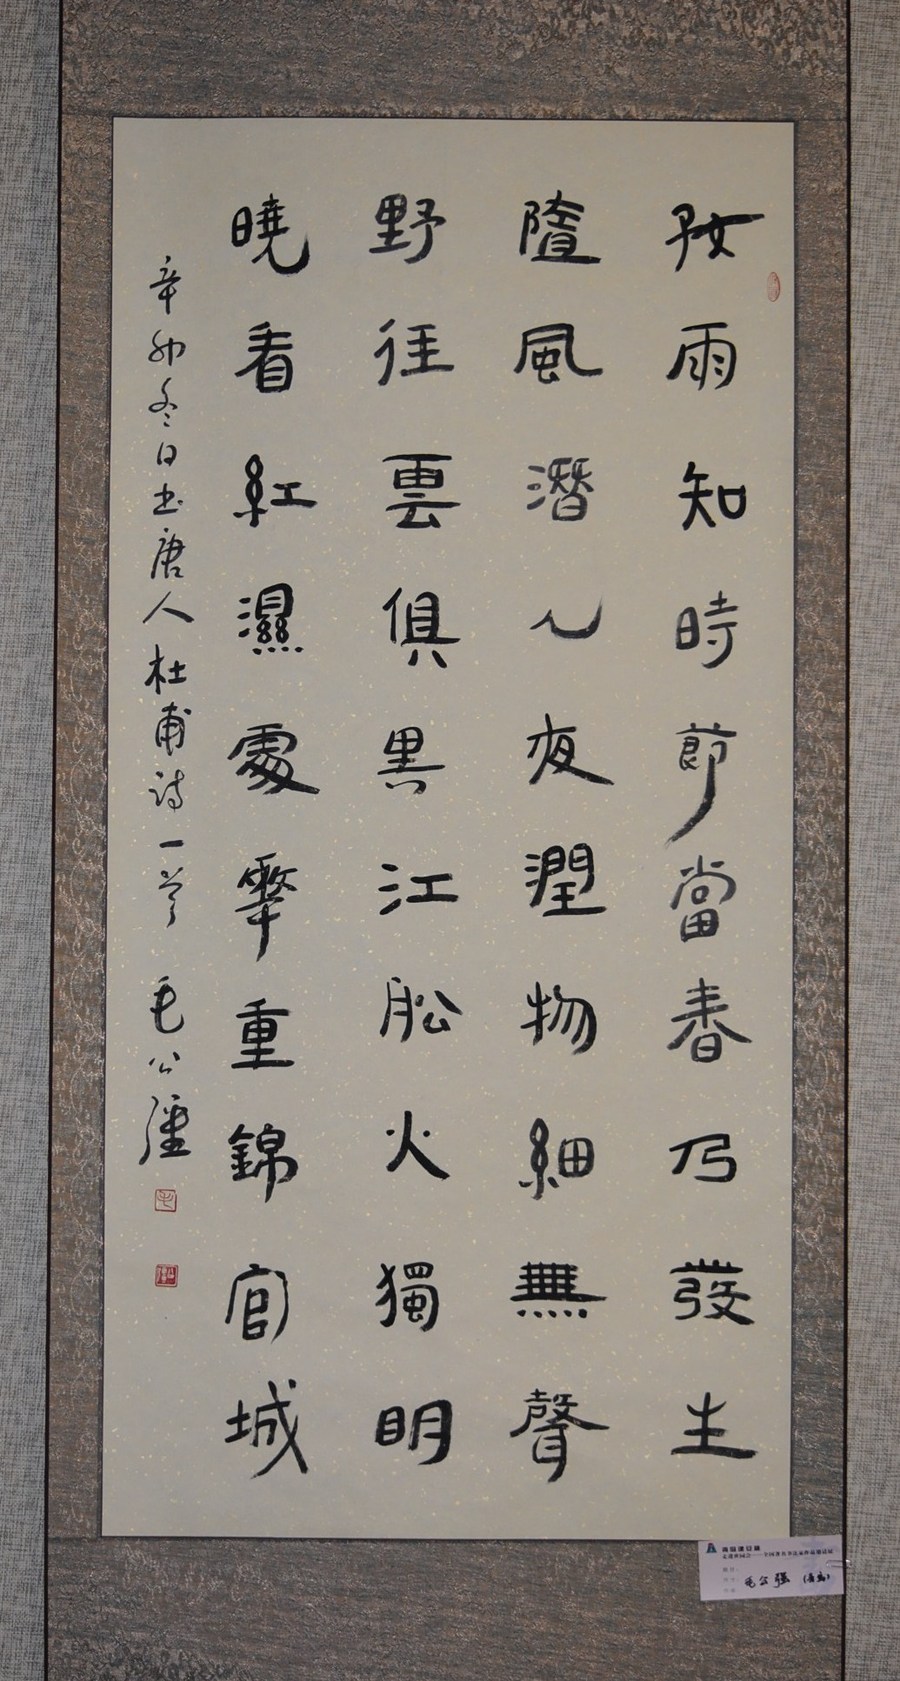 好雨知時節當春乃發生
隨風潛入夜潤物細無聲
野徑雲俱黑江船火獨明
曉看紅濕處花重錦官城
辛卯冬日书唐人杜甫诗一首 毛公强
毛公强